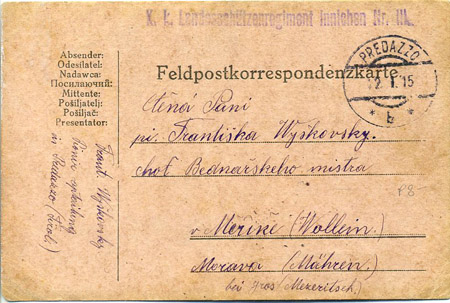 K. k. Landesschützenregiment Innichen Nr. III.
PREDAZZO
2. I. 15
* b *
Absender:
Odesílatel:
Nadawca:
Посилаючий:
Mittente:
Pošiljatelj:
Pošiljač:
Presentator:
Feldpostkorrespondenzkarte.
Ctená Paní
pí. Františka Wyskovsky.
choť Bednařskeho mistra
v Merine (Wollein)
Morava (Mähren.)
bei Gros Meseritsch.)
P8
Wyskovsky
in Predazzo (Tiroli)